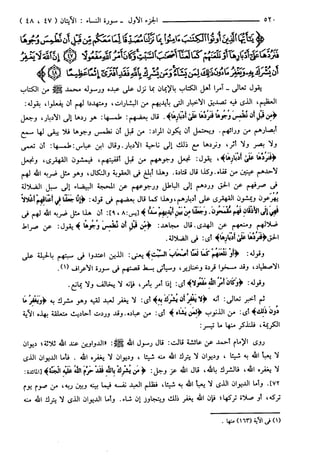 ٥٢٠ الجزء الأول - سورة النساء : الآيتان ( ٤٧ ، ٤٨ )
﴿ يَا أَيُّهَا الَّذِينَ أُوتُوا الْكِتَابَ آمِنُوا بِمَا نَزَّلْنَا مُصَدِّقًا لِّمَا مَعَكُم مِّن قَبْلِ أَن نَّطْمِسَ وُجُوهًا
فَنَرُدَّهَا عَلَىٰ أَدْبَارِهَا أَوْ نَلْعَنَهُمْ كَمَا لَعَنَّا أَصْحَابَ السَّبْتِ وَكَانَ أَمْرُ اللَّهِ مَفْعُولًا إِنَّ اللَّهَ لَا يَغْفِرُ
أَن يُشْرَكَ بِهِ وَيَغْفِرُ مَا دُونَ ذَٰلِكَ لِمَن يَشَاءُ وَمَن يُشْرِكْ بِاللَّهِ فَقَدِ افْتَرَىٰ إِثْمًا عَظِيمًا ﴾
يقول تعالى - آمرا أهل الكتاب بالإيمان بما نزل على عبده ورسوله محمد ﷺ من الكتاب
العظيم، الذى فيه تصديق الأخبار التى بأيديهم من البشارات، ومتهددا لهم أن يفعلوا، بقوله:
﴿من قبل أن نطمس وجوها فنردها على أدبارها﴾. قال بعضهم: طمسها: هو ردها إلى الأدبار، وجعل
أبصارهم من ورائهم. ويحتمل أن يكون المراد: من قبل أن نطمس وجوها فلا يبقى لها سمع
ولا بصر ولا أثر، ونردها مع ذلك إلى ناحية الأدبار. وقال ابن عباس: طمسها: أن تعمى
﴿فنردها على أدبارها﴾، يقول: نجعل وجوههم من قبل أقفيتهم، فيمشون القهقرى، ونجعل
لأحدهم عينين من قفاه. وكذا قال قتادة. وهذا أبلغ فى العقوبة والنكال، وهو مثل ضربه الله لهم
فى صرفهم عن الحق وردهم إلى الباطل ورجوعهم عن المحجة البيضاء إلى سبل الضلالة
يهرعون ويمشون القهقرى على أدبارهم، وهذا كما قال بعضهم فى قوله: ﴿إنا جعلنا فى أعناقهم أغلالا
فهى إلى الأذقان فهم مقمحون. وجعلنا من بين أيديهم سدا﴾ [يس: ٨، ٩]: أن هذا مثل ضربه الله لهم فى
ضلالهم ومنعهم عن الهدى. قال مجاهد: ﴿من قبل أن نطمس وجوها﴾ يقول: عن صراط
الحق ﴿فنردها على أدبارها﴾ أى: فى الضلالة.
وقوله: ﴿أو نلعنهم كما لعنا أصحاب السبت﴾ يعنى: الذين اعتدوا فى سبتهم بالحيلة على
الاصطياد، وقد مسخوا قردة وخنازير، وسيأتى بسط قصتهم فى سورة الأعراف (١).
وقوله: ﴿وكان أمر الله مفعولا﴾ أى: إذا أمر بأمر، فإنه لا يخالف ولا يمانع.
ثم أخبر تعالى: أنه ﴿لا يغفر أن يشرك به﴾ أى: لا يغفر لعبد لقيه وهو مشرك به ﴿ويغفر ما
دون ذلك﴾ أى: من الذنوب ﴿لمن يشاء﴾ أى: من عباده. وقد وردت أحاديث متعلقة بهذه الآية
الكريمة، فلنذكر منها ما تيسر:
روى الإمام أحمد عن عائشة قالت: قال رسول الله ﷺ: «الدواوين عند الله ثلاثة؛ ديوان
لا يعبأ الله به شيئا ، وديوان لا يترك الله منه شيئا ، وديوان لا يغفره الله . فأما الديوان الذى
لا يغفره الله، فالشرك بالله، قال الله عز وجل: ﴿من يشرك بالله فقد حرم الله عليه الجنة﴾ [المائدة:
٧٢]. وأما الديوان الذى لا يعبأ الله به شيئا، فظلم العبد نفسه فيما بينه وبين ربه، من صوم يوم
تركه، أو صلاة تركها؛ فإن الله يغفر ذلك ويتجاوز إن شاء. وأما الديوان الذى لا يترك الله منه
(١) فى الآية (١٦٣) منها .